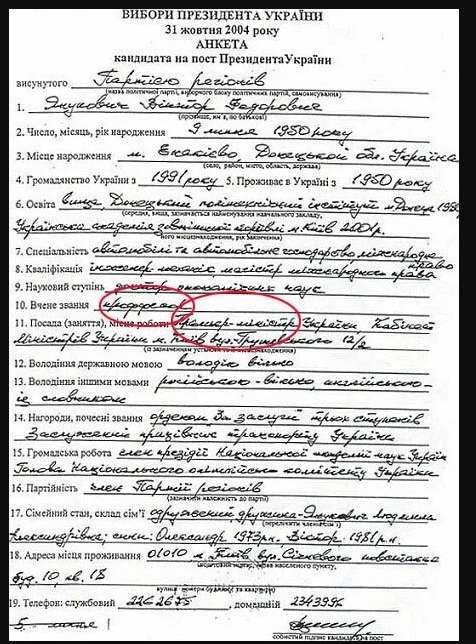 ВИБОРИ ПРЕЗИДЕНТА УКРАЇНИ
31 жовтня 2004 року
АНКЕТА
кандидата на пост Президента України
висунутого Партією регіонів
(назва політичної партії, виборчого блоку політичних партій, самовисування)
1. Янукович Віктор Федорович
(прізвище, ім'я, по батькові)
2. Число, місяць, рік народження 9 липня 1950 року
3. Місце народження м. Єнакієво Донецької обл. Україна
(село, район, місто, область, держава)
4. Громадянство України з 1991 року 5. Проживає в Україні з 1950 року
6. Освіта вища Донецький політехнічний інститут м. Донецк 1980
(середня, вища, зазначається найменування навчального закладу,
Українська академія зовнішньої торгівлі м. Київ 2001р.
його місцезнаходження, рік закінчення)
7. Спеціальність автомобілі та автомобільне господарство, міжнародне право
8. Кваліфікація інженер-механік, магістр міжнародного права
9. Науковий ступінь доктор економічних наук
10. Вчене звання проффесор
11. Посада (заняття), місце роботи Прємьєр-міністр України, Кабінет
Міністрів України м. Київ вул. Грушевського 12/2
(із зазначенням установи та її місцезнаходження)
12. Володіння державною мовою володію вільно
13. Володіння іншими мовами російською - вільно, англійською -
із словником
14. Нагороди, почесні звання орденом За заслуги трьох ступенів
Заслужений працівник транспорту України
15. Громадська робота член президії Національної академії наук України
Голова Національного олімпійського комітету України
16. Партійність член Партії регіонів
(зазначити належність до партії)
17. Сімейний стан, склад сім'ї одружений дружина - Янукович Людмила
(перелічити членів сім'ї)
Александрівна; сини: Олександр 1973р.н. Віктор 1981р.н.
18. Адреса місця проживання 01010 м. Київ, вул. Січневого повстання
буд. 10, кв. 18
вулиця номери будинку і квартири)
19. Телефон: службовий 2262675, домашній 2343996
5. липня
особистий підпис кандидата на пост